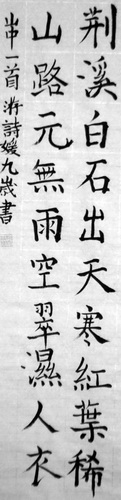 荆溪白石出天寒紅葉稀
山路元無雨空翠濕人衣
山中一首游詩媛九歲書